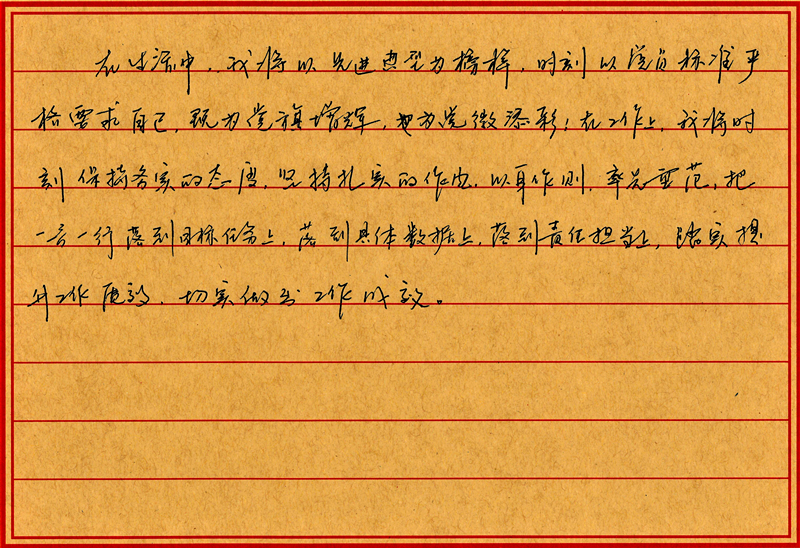 在生活中，我将以先进典型为榜样，时刻以党员标准严
格要求自己，既为党旗增辉，也为党徽添彩；在工作上，我将时
刻保持务实的态度，坚持扎实的作风，以身作则，率先垂范，把
一言一行落到目标任务上，落到具体数据上，落到责任担当上，踏实提
升工作质效，切实做出工作成效。